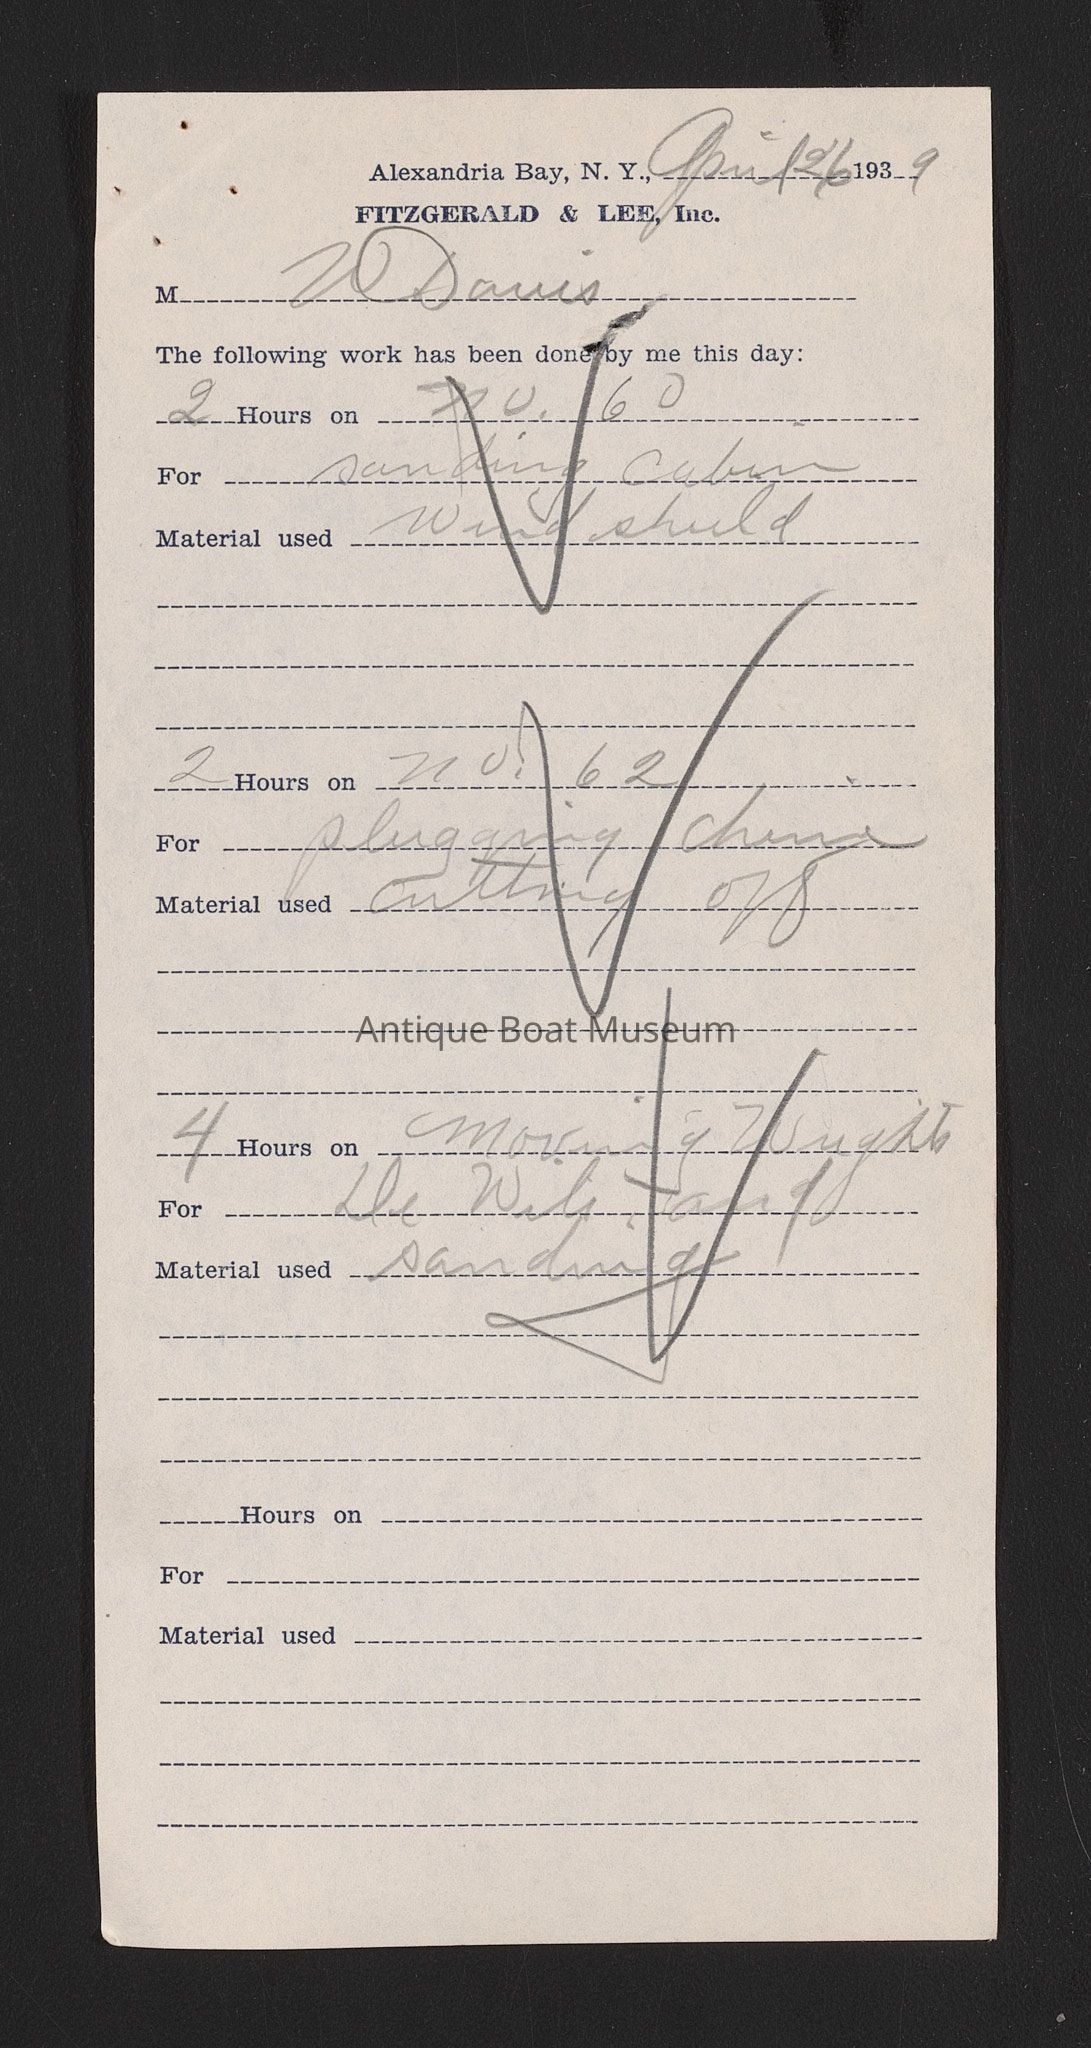 Alexandria Bay, N. Y., April 26 1939
FITZGERALD & LEE, Inc.
M W Davis
The following work has been done by me this day:
2 Hours on no. 60
For sanding cabin
Material used Wind shield
2 Hours on no. 62
For plugging chine
Material used cutting off
Antique Boat Museum
4 Hours on Moving Wrights
For De Wils and
Material used sanding
Hours on
For
Material used